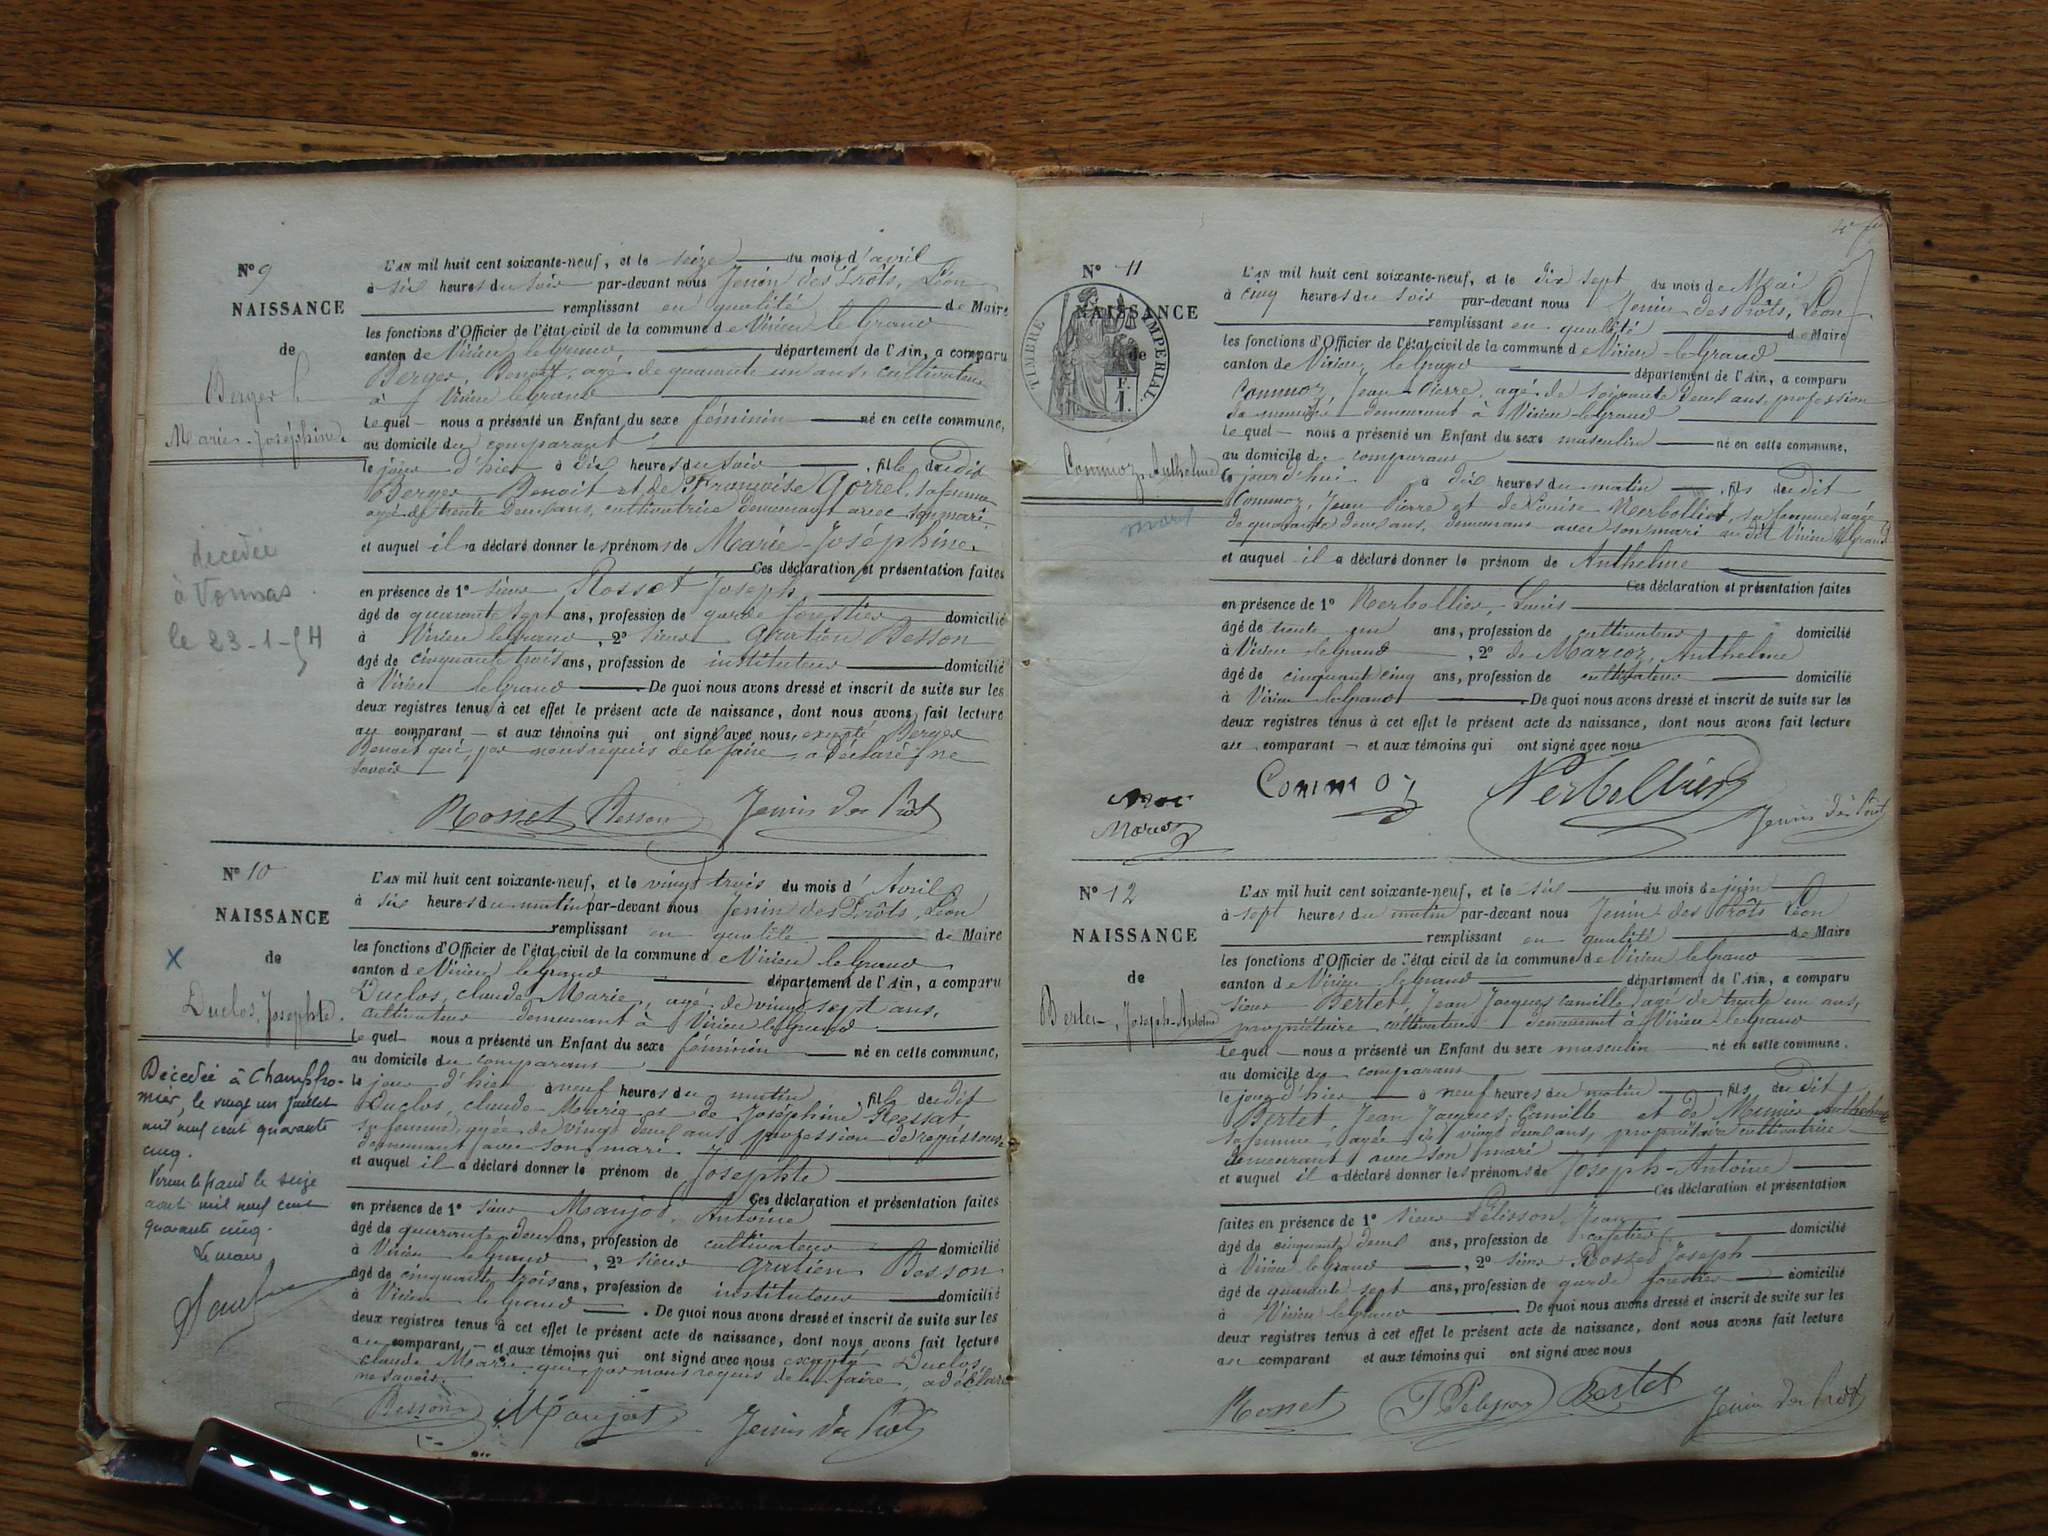 N° 9
NAISSANCE
de
Berger
Marie-Joséphine.
decedée
à Vonnas
le 23-1-54
L'AN mil huit cent soixante-neuf, et le seize du mois d'avril
à six heures du soir par-devant nous Jenin des Prôts, Léon
remplissant en qualité de Maire
les fonctions d'Officier de l'état civil de la commune de Virieu le Grand
canton de Virieu le Grand département de l'Ain, a comparu
Berger, Benoit, agé de quarante un ans, cultivateur
à Virieu le Grand
Lequel nous a présenté un Enfant du sexe féminin né en cette commune,
au domicile du comparant
le jour d'hier à dix heures du soir, fille dudit
Berger Benoit et de Françoise Gorrel, sa femme
agée de trente deux ans, cultivatrice demeurant avec son mari.
et auquel il a déclaré donner les prénoms de Marie-Joséphine.
Ces déclaration et présentation faites
en présence de 1° sieur Rosset Joseph
âgé de quarante sept ans, profession de garde forestier domicilié
à Virieu le grand, 2° sieur Gratien Besson
âgé de cinquante trois ans, profession de instituteur domicilié
à Virieu le Grand. De quoi nous avons dressé et inscrit de suite sur les
deux registres tenus à cet effet le présent acte de naissance, dont nous avons fait lecture
au comparant et aux témoins qui ont signé avec nous, excepté Berger
Benoit qui, par nous requis de le faire, a déclaré ne
savoir
Rosset Besson Jenin des Prôts
N° 10
NAISSANCE
de
X
Duclos, Josephte.
Décédée à Champfro-
mier, le vingt un juillet
mil neuf cent quarante
cinq.
Virieu le grand le seize
août mil neuf cent
quarante cinq.
Le maire
L'AN mil huit cent soixante-neuf, et le vingt trois du mois d'Avril
à six heures du matin par-devant nous Jenin des Prôts, Léon
remplissant en qualité de Maire
les fonctions d'Officier de l'état civil de la commune de Virieu le Grand
canton de Virieu le Grand département de l'Ain, a comparu
Duclos, claude Marie, agé de vingt sept ans,
cultivateur demeurant à Virieu le grand.
Lequel nous a présenté un Enfant du sexe féminin né en cette commune,
au domicile du comparant
le jour d'hier à neuf heures du matin, fille dudit
Duclos, claude-Marie et de Joséphine Rossat
sa femme, agée de vingt deux ans, profession de
demeurant avec son mari.
et auquel il a déclaré donner le prénom de Josephte
Ces déclaration et présentation faites
en présence de 1° sieur Maujot, Antoine
âgé de quarante deux ans, profession de cultivateur domicilié
à Virieu le Grand, 2° sieur Gratien Besson
âgé de cinquante trois ans, profession de instituteur domicilié
à Virieu le Grand. De quoi nous avons dressé et inscrit de suite sur les
deux registres tenus à cet effet le présent acte de naissance, dont nous avons fait lecture
au comparant, et aux témoins qui ont signé avec nous excepté Duclos,
claude Marie qui, par nous requis de le faire, a déclaré
ne savoir.
Besson Maujot Jenin des Prôts
N° 11
NAISSANCE
de
TIMBRE IMPERIAL
1 F.
Commoz, Anthelme
mort
L'AN mil huit cent soixante-neuf, et le dix sept du mois de Mai
à cinq heures du soir par-devant nous Jenin des Prôts, Léon
remplissant en qualité de Maire
les fonctions d'Officier de l'état civil de la commune de Virieu-le-Grand
canton de Virieu le grand département de l'Ain, a comparu
Commoz, Jean-Pierre, agé de soixante deux ans, profession
de demeurant à Virieu-le-Grand
Lequel nous a présenté un Enfant du sexe masculin né en cette commune,
au domicile du comparant
le jourd'hui à dix heures du matin, fils dudit
Commoz, Jean Pierre et de Louise Nerbollier, sa femme, agée
de quarante deux ans, demeurant avec son mari au dit Virieu le grand
et auquel il a déclaré donner le prénom de Anthelme
Ces déclaration et présentation faites
en présence de 1° Nerbollier, Louis
âgé de trente un ans, profession de cultivateur domicilié
à Virieu le Grand, 2° de Marcoz, Anthelme
âgé de cinquante cinq ans, profession de cultivateur domicilié
à Virieu le Grand. De quoi nous avons dressé et inscrit de suite sur les
deux registres tenus à cet effet le présent acte de naissance, dont nous avons fait lecture
au comparant et aux témoins qui ont signé avec nous
Marcoz Commoz Nerbollier Jenin des Prôts
N° 12
NAISSANCE
de
Bertet, Joseph-Antoine
L'AN mil huit cent soixante-neuf, et le six du mois de juin
à sept heures du matin par-devant nous Jenin des Prôts Léon
remplissant en qualité de Maire
les fonctions d'Officier de l'état civil de la commune de Virieu le Grand
canton de Virieu le Grand département de l'Ain, a comparu
sieur Bertet Jean Jacques Camille, agé de trente un ans,
propriétaire cultivateur demeurant à Virieu-le-grand
Lequel nous a présenté un Enfant du sexe masculin né en cette commune.
au domicile du comparant
le jour d'hier à neuf heures du matin, fils dudit
Bertet Jean Jacques Camille et de Munier Anthelmette
sa femme, agée de vingt deux ans, propriétaire cultivatrice
demeurant avec son mari
et auquel il a déclaré donner les prénoms de Joseph-Antoine
Ces déclaration et présentation
faites en présence de 1° sieur Pélisson, Jean
âgé de cinquante deux ans, profession de cafetier domicilié
à Virieu le Grand, 2° sieur Rosset Joseph
âgé de quarante sept ans, profession de garde forestier domicilié
à Virieu le grand. De quoi nous avons dressé et inscrit de suite sur les
deux registres tenus à cet effet le présent acte de naissance, dont nous avons fait lecture
au comparant et aux témoins qui ont signé avec nous
Rosset J Pelisson Bertet Jenin des Prôts